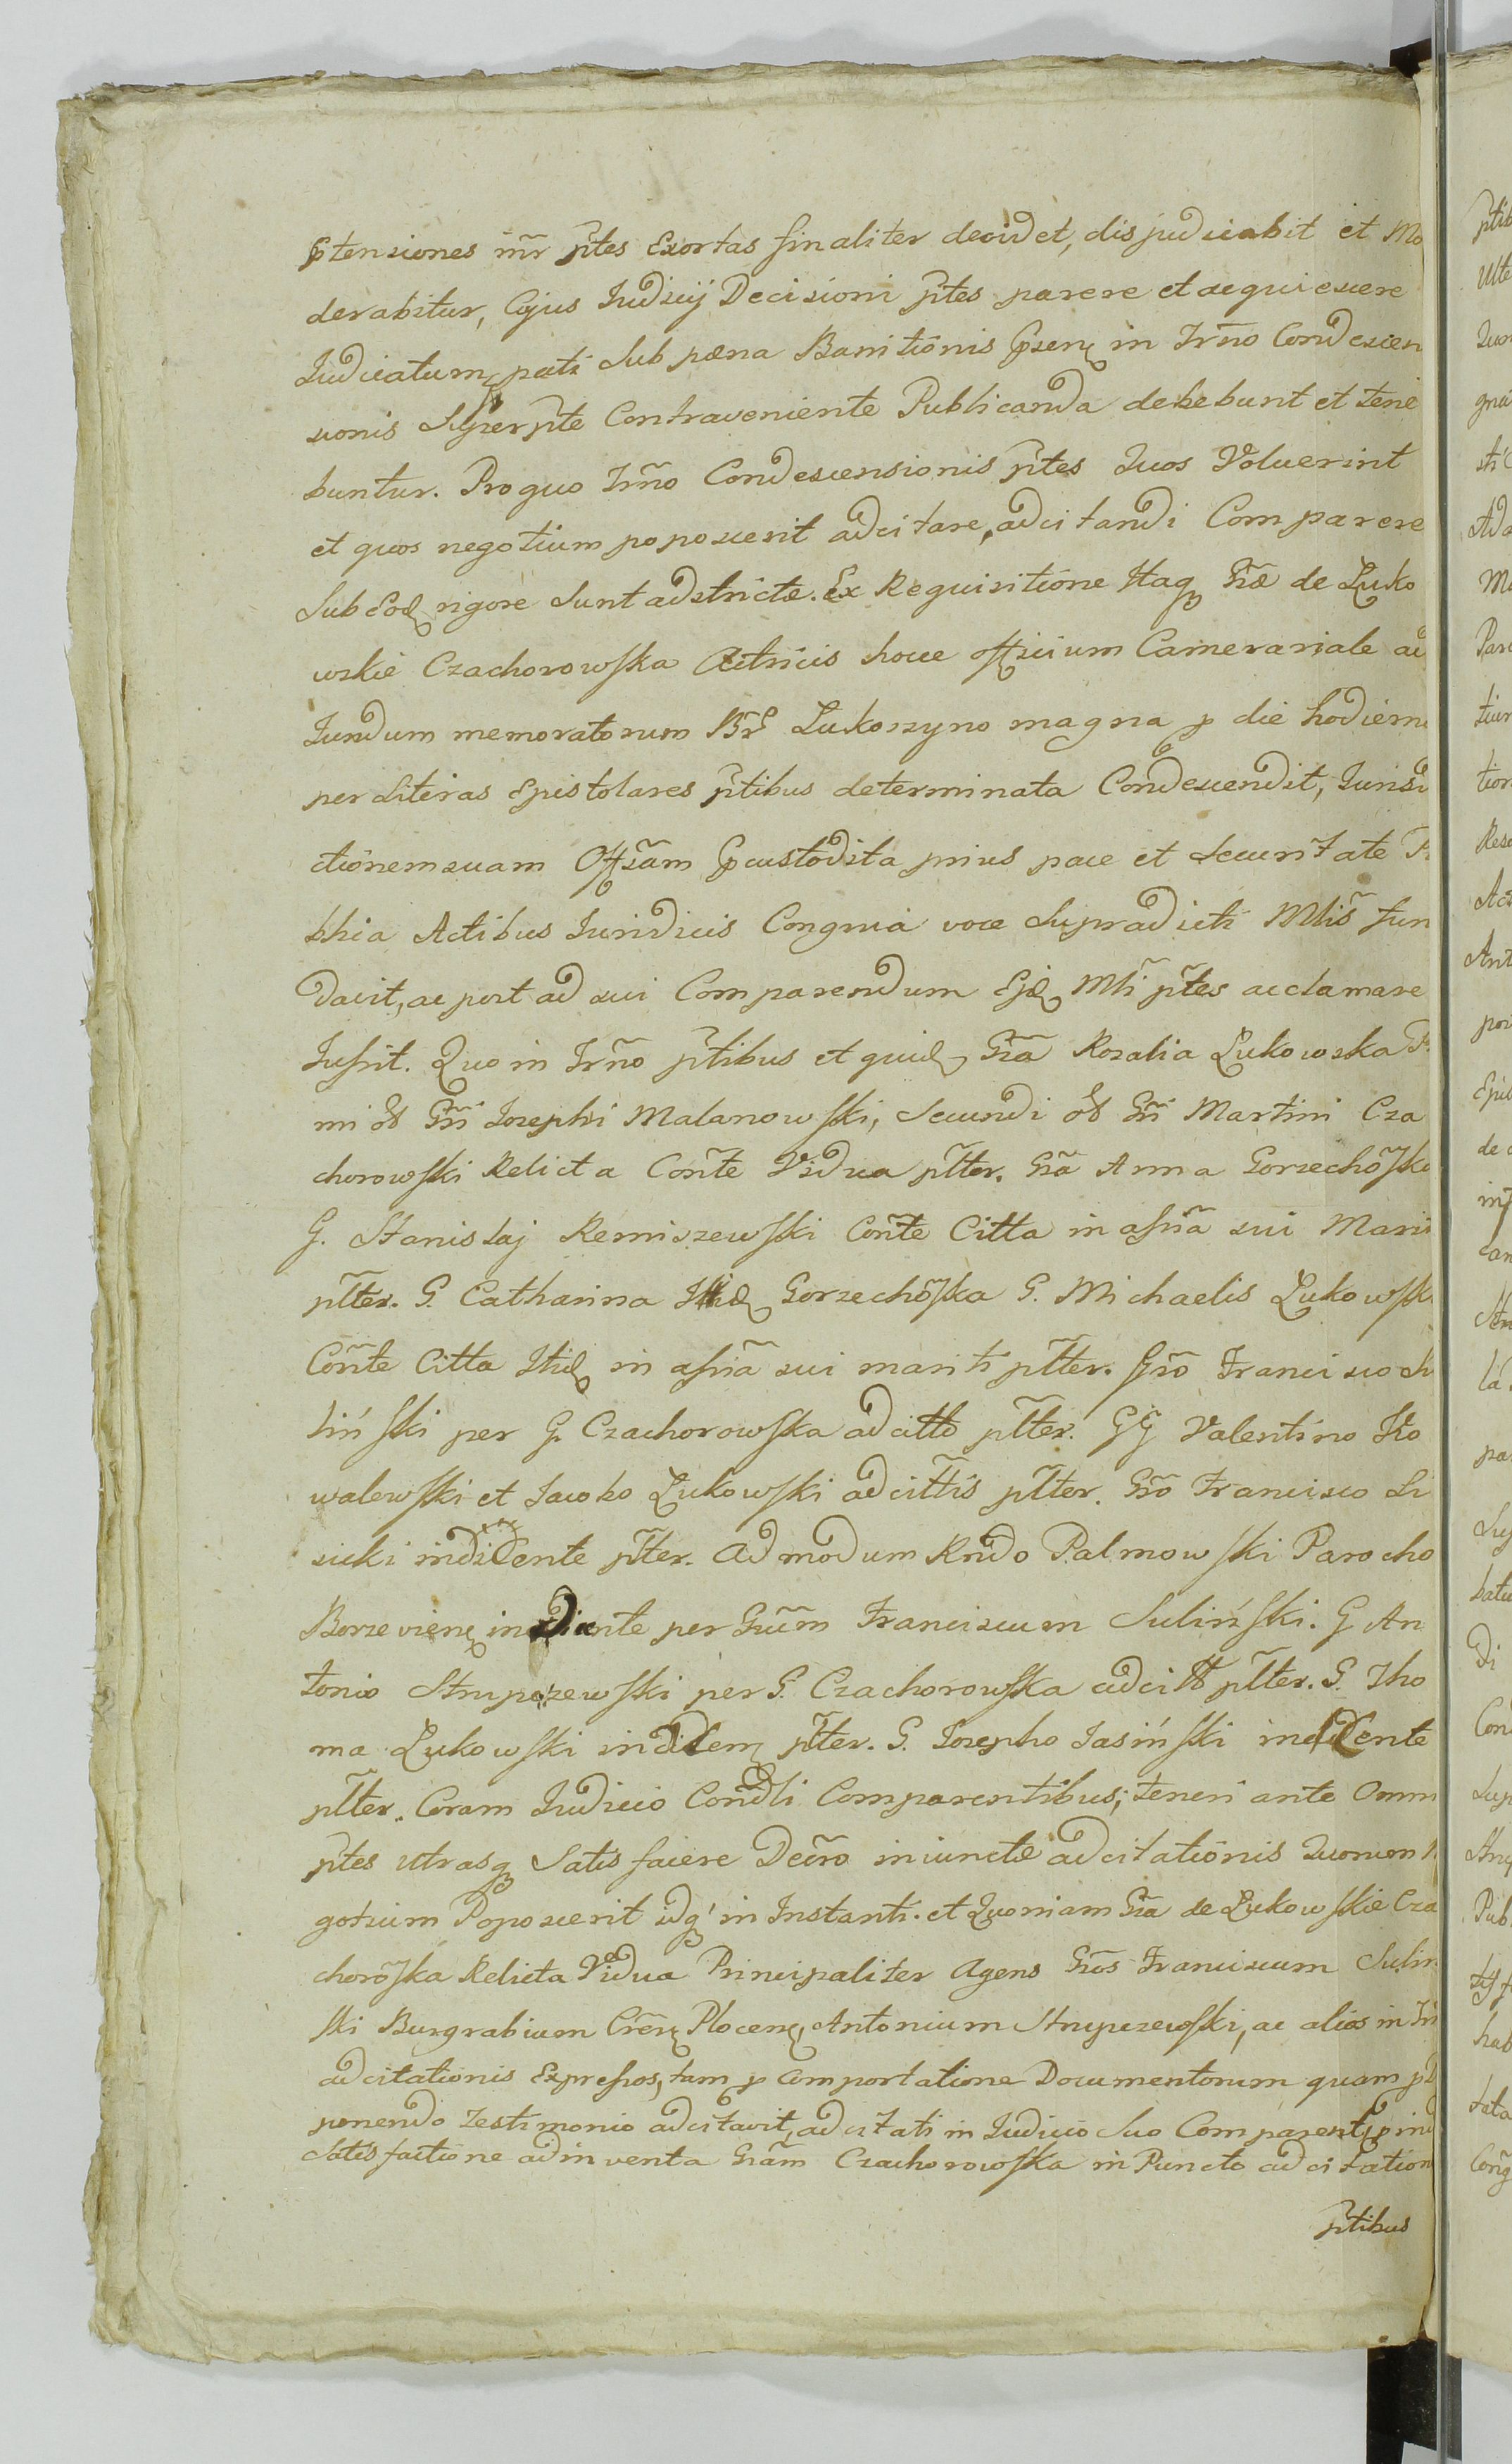 ꝓtensiones inr̃ pt̃es Exortas finaliter decidet, disjudicabit et Mo
derabitur, Cujus Judicij Decisioni pt̃es parere et acquiescere
Judicatumq pati Sub pæna Banitionis Ꝓsenꝭ in Trño Condescen
sionis Super pt̃e Contraveniente Publicanda debebunt et tene
buntur. Pro quo Trño Condescensionis pt̃es Quos Voluerint
et quos negotium poposcerit adcitare, adcitandi Comparere
Sub Eodꝭ rigore Sunt adstricti. Ex Requisitione Itaqꝫ Gñæ de Luko
wskie Czachorowska Actricis hocce officium Camerariale ad
fundum memoratorum Br̃ Lukoszyno magna p die hodierna
per Literas Epistolares pt̃ibus determinata Condescendit, Jurisdi
ctionem suam Offsãm Ꝓcustodita prius pace et Securitate
blica Actibus Juridicis Congrua voce Supradicti Mlis̃ fun
davit, ac post ad sui Comparendum Ejdꝭ Mli pt̃es acclamare
Jussit. Quo in Trño pt̃ibus et quidꝭ Gñã Rozalia Lukowska
mi olĩ Gñi Josephi Malanowski, Secundi olĩ Gñi Martini Cza
chorowski Relicta Coñte Vidua pl̃ter. Gñã Anna Gorzechõska
G. Stanislaj Remiszewski Coñte Citta in assñã sui Mariti
pl̃ter. G. Catharina Itidꝭ Gorzechõska G. Michaelis Lukowski
Coñte Citta Itidꝭ in assñã sui mariti pl̃ter. Gñõ Francisco Su
liński per G. Czachorowska adcitto pl̃ter. GG Valentino Ko
walewski et Jacobo Lukowski adcittis pl̃ter. Gñõ Francisco Li
sicki indicente pl̃ter. Admodum Rñdo Palmowski Parocho
Borzevienꝭ indicente per Gñũm Franciscum Suliński. G An
tonio Strupczewski per G. Czachorowska adcitt pl̃ter. G. Tho
ma Lukowski indicenꝭ pl̃ter. G. Josepho Jasiński indicente
pl̃ter. Coram Judicio Condl̃i Comparentibus; teneri ante Omnia
pt̃es utrasqꝫ Satisfacere Decr̃o iniunctæ adcitationis Quorum
gotium Poposcerit idqꝫ in Instanti. et Quoniam Gñã de Lukowskie Cza
chorõska Relicta Vidua Principaliter Agens Gñõs Franciscum Suliń
ski Burgrabium Crẽnꝭ Plocenꝭ, Antonium Strupczewski, ac alios in
adcitationis Expressos, tam p comportatione Documentorum quam p
ponendo Testimonio adcitavit, adcitati in Judicio Suo Comparentes
Satisfactione adinventa Gñãm Czachorowska in Puncto adcitation
pt̃ibus